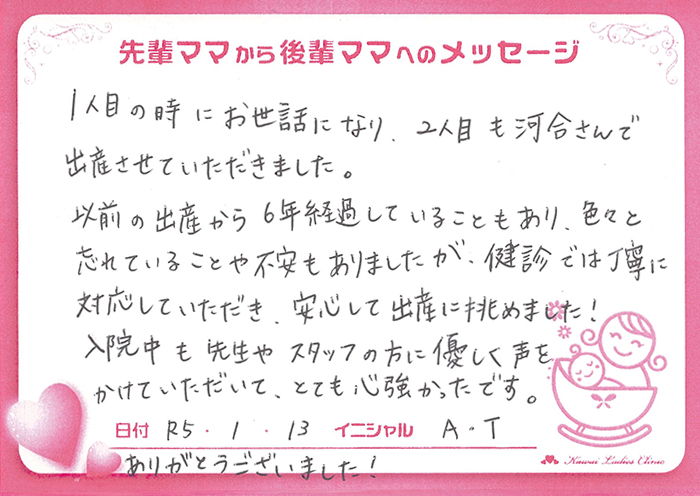 先輩ママから後輩ママへのメッセージ
1人目の時にお世話になり、2人目も河合さんで
出産させていただきました。
以前の出産から6年経過していることもあり、色々と
忘れていることや不安もありましたが、健診では丁寧に
対応していただき、安心して出産に挑めました!
入院中も先生やスタッフの方に優しく声を
かけていただいて、とても心強かったです。
日付 R5・1・13 イニシャル A・T
ありがとうございました!
Kawai Ladies Clinic